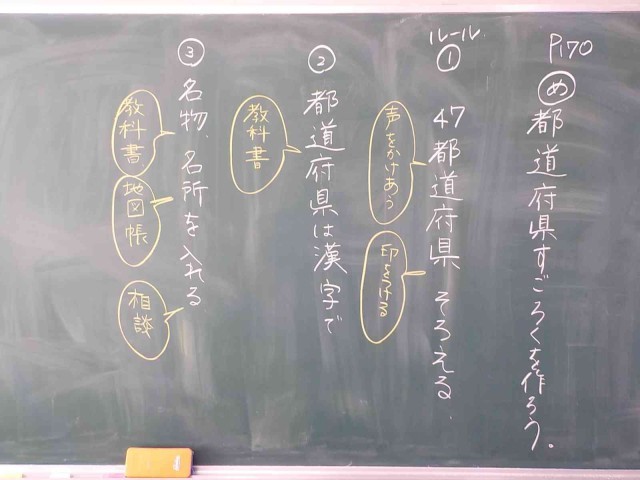 P.170
め 都道府県すごろくを作ろう。
ルール
① 47都道府県 そろえる.
声をかけあう
印をつける
② 都道府県は漢字で
教科書
③ 名物、名所を入れる
教科書
地図帳
相談